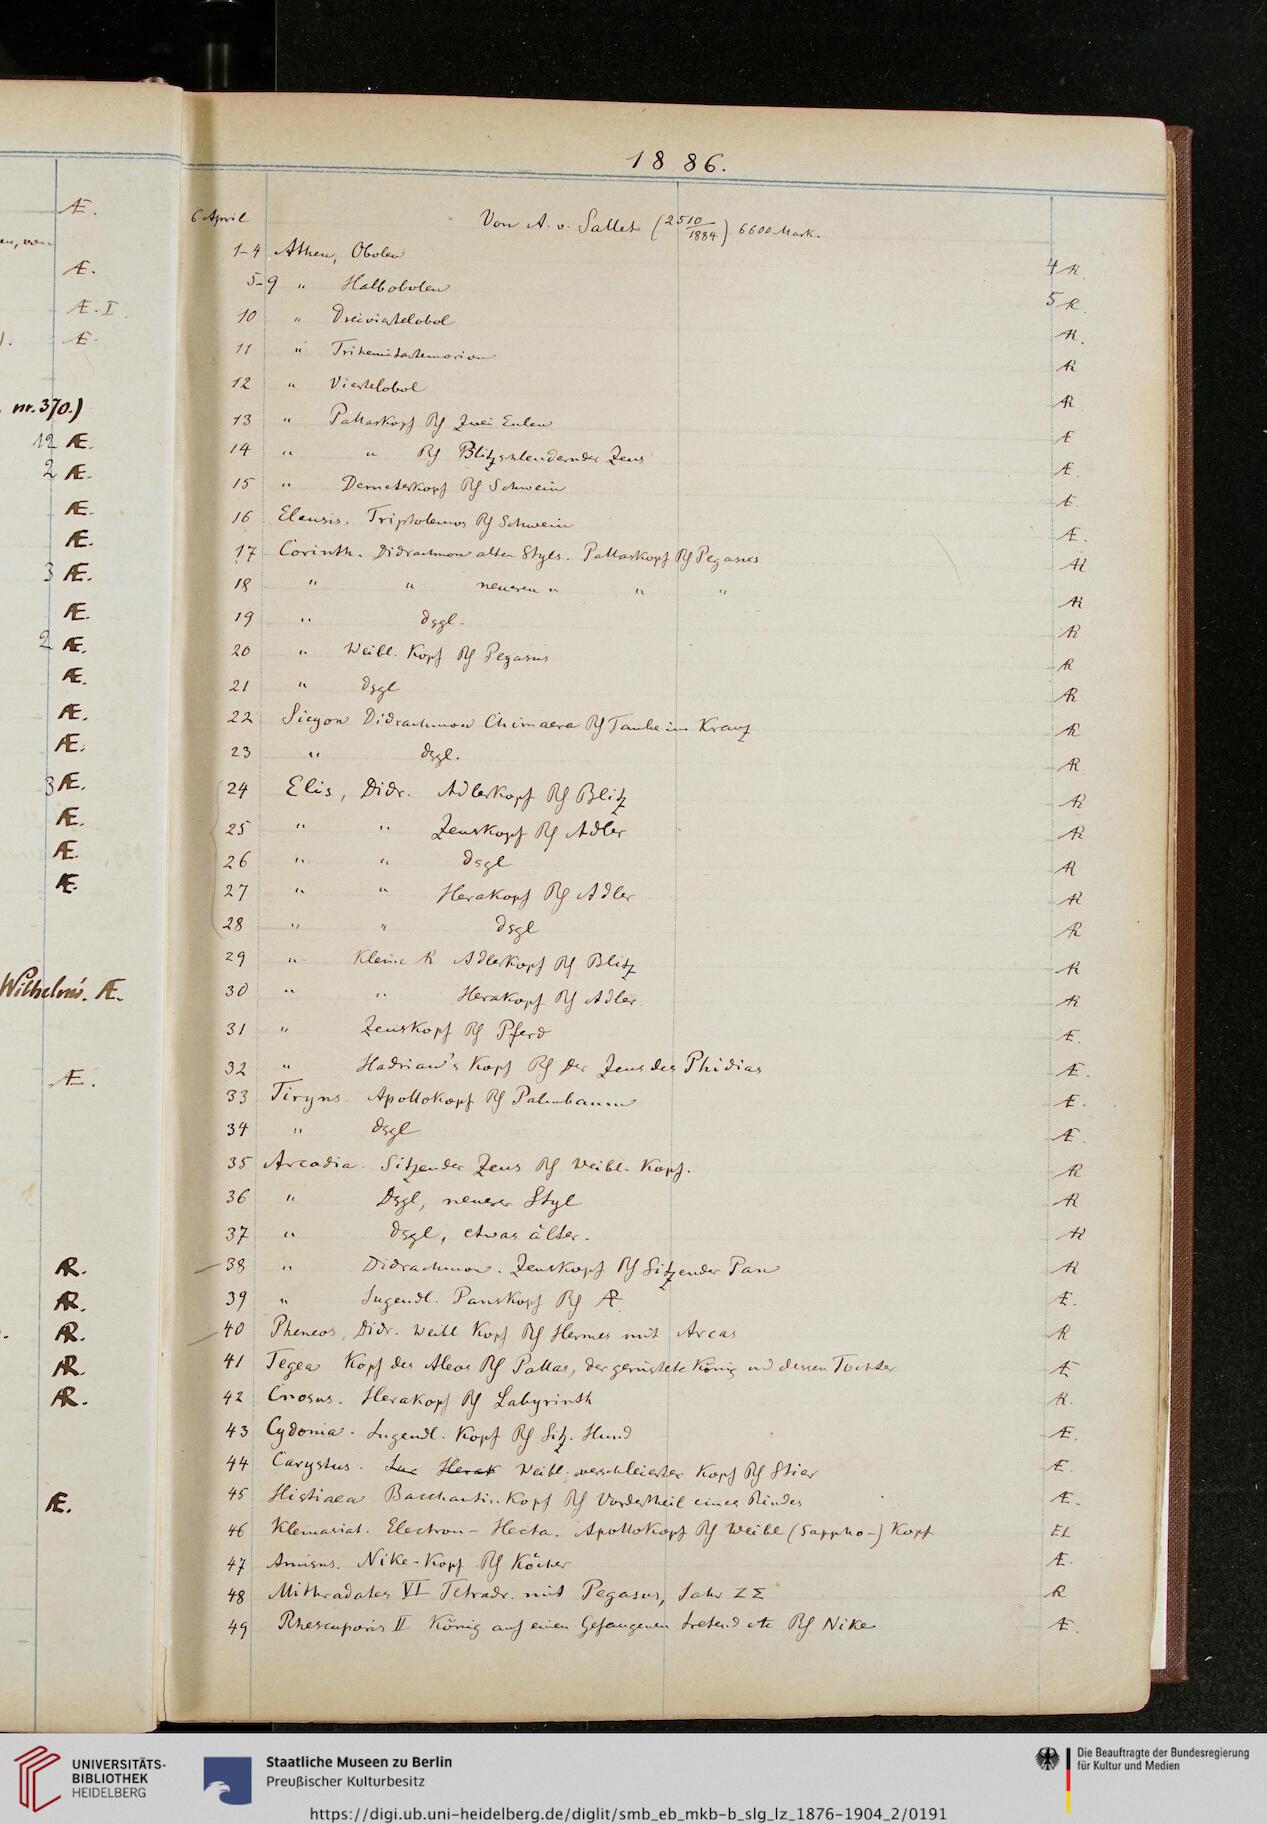 Æ.
Æ.
Æ. I.
Æ.
nr. 370.)
12 Æ.
2 Æ.
Æ.
Æ.
3 Æ.
Æ.
2 Æ.
Æ.
Æ.
Æ.
3 Æ.
Æ.
Æ.
Æ.
Wilhelms. Æ.
Æ.
AR.
AR.
AR.
AR.
AR.
Æ.
1886.
6 April Von A. v. Sallet (2510/1884) 6600 Mark.
1-4 Athen, Obolen 4 AR.
5-9 " Halbobolen 5 AR.
10 " Dreiviertelobol AR.
11 " Trihemitartemorion AR
12 " Viertelobol AR
13 " Pallaskopf Rf Zwei Eulen Æ
14 " " Rf Blitzschleudernder Zeus Æ.
15 " Demeterkopf Rf Schwein Æ.
16 Eleusis. Triptolemos Rf Schwein Æ.
17 Corinth. Didrachmon alten Styls. Pallaskopf Rf Pegasus AR
18 " " neueren " " " AR
19 " dsgl. AR
20 " Weibl. Kopf Rf Pegasus AR
21 " dsgl AR
22 Sicyon Didrachmon Chimaera Rf Taube im Kranz AR
23 " dsgl. AR
24 Elis, Didr. Adlerkopf Rf Blitz AR
25 " " Zeuskopf Rf Adler AR
26 " " dsgl AR
27 " " Herakopf Rf Adler AR
28 " " dsgl AR
29 " Kleine AR Adlerkopf Rf Blitz AR
30 " " Herakopf Rf Adler. AR
31 " Zeuskopf Rf Pferd Æ.
32 " Hadrian's Kopf Rf der Zeus des Phidias Æ.
33 Tiryns. Apollokopf Rf Palmbaum Æ.
34 " dsgl Æ.
35 Arcadia. Sitzender Zeus Rf Weibl. Kopf. AR
36 " Dsgl, neuerer Styl AR
37 " dsgl, etwas älter. AR
38 " Didrachmon. Zeuskopf Rf Sitzender Pan AR
39 " Jugendl. Panskopf Rf Æ.
40 Pheneos, Didr. Weibl Kopf Rf Hermes mit Arcas AR
41 Tegea Kopf des Aleos Rf Pallas, der gerüstete König und dessen Tochter Æ
42 Cnosus. Herakopf Rf Labyrinth AR.
43 Cydonia. Jugendl. Kopf Rf Sitz. Hund Æ.
44 Carystus. Herak Weibl. verschleierter Kopf Rf Stier Æ.
45 Histiaea Bacchantin. Kopf Rf Vordertheil eines Rindes Æ.
46 Kleinasiat. Electron-Hecta. Apollokopf Rf Weibl (Sappho-) Kopf EL
47 Amisus. Nike-Kopf Rf Köcher Æ.
48 Mithradates VI Tetradr. mit Pegasus, Jahr ΖΣ AR
49 Rhescuporis II König auf einen Gefangenen tretend etc Rf Nike Æ.
UNIVERSITÄTS-
BIBLIOTHEK
HEIDELBERG
Staatliche Museen zu Berlin
Preußischer Kulturbesitz
Die Beauftragte der Bundesregierung
für Kultur und Medien
https://digi.ub.uni-heidelberg.de/diglit/smb_eb_mkb-b_slg_lz_1876-1904_2/0191